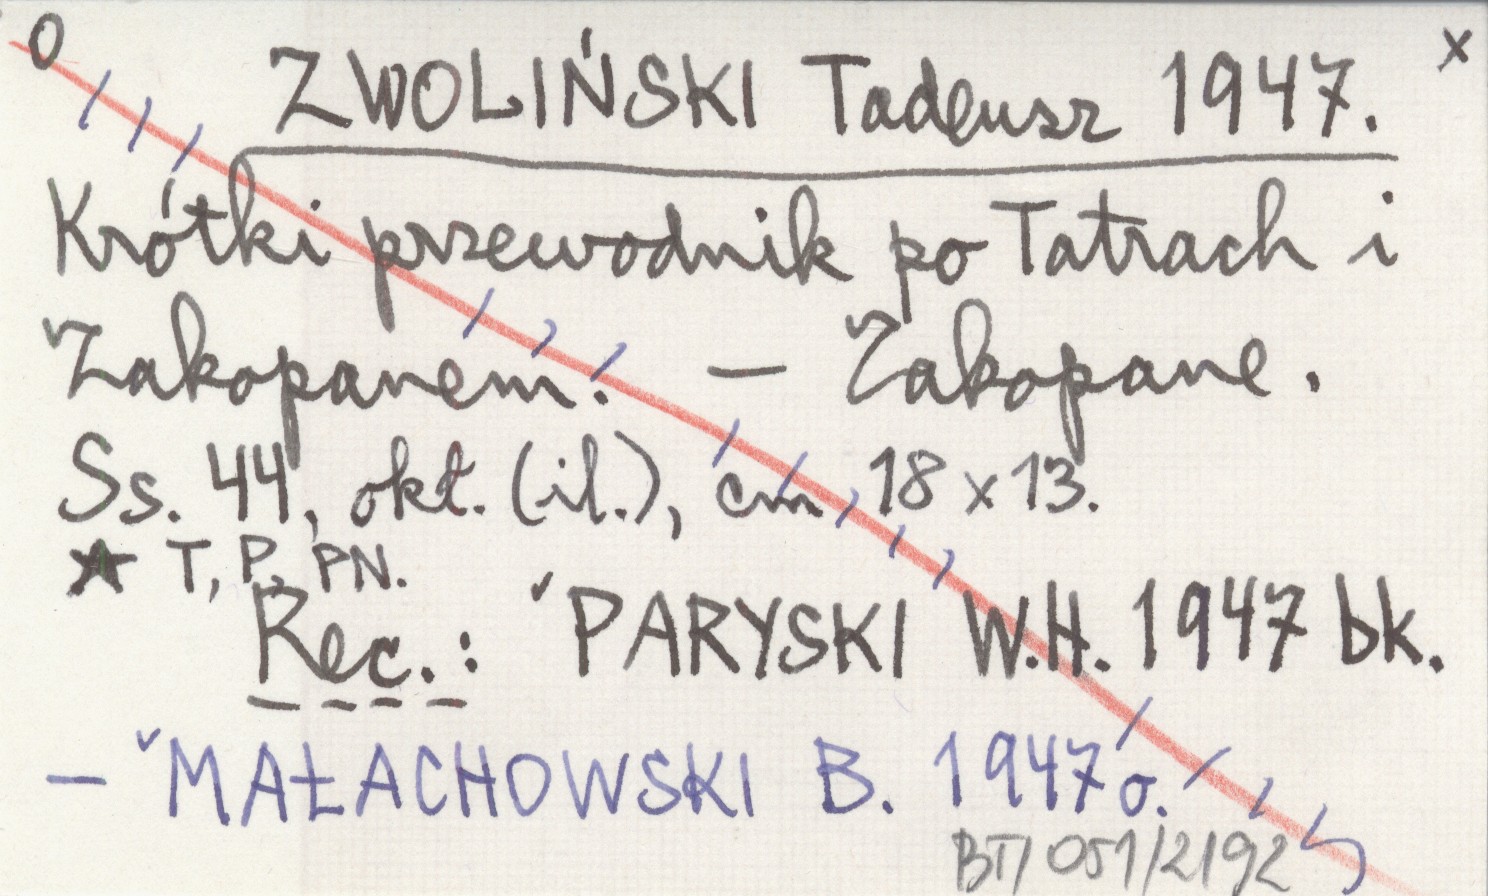 O ZWOLIŃSKI Tadeusz 1947. x
Krótki przewodnik po Tatrach i
Zakopanem. – Zakopane.
Ss. 44, okł. (il.), cm 18 x 13.
★ T, P, PN.
Rec.: PARYSKI W.H. 1947 bk.
– MAŁACHOWSKI B. 1947 o.
BT/051/2192